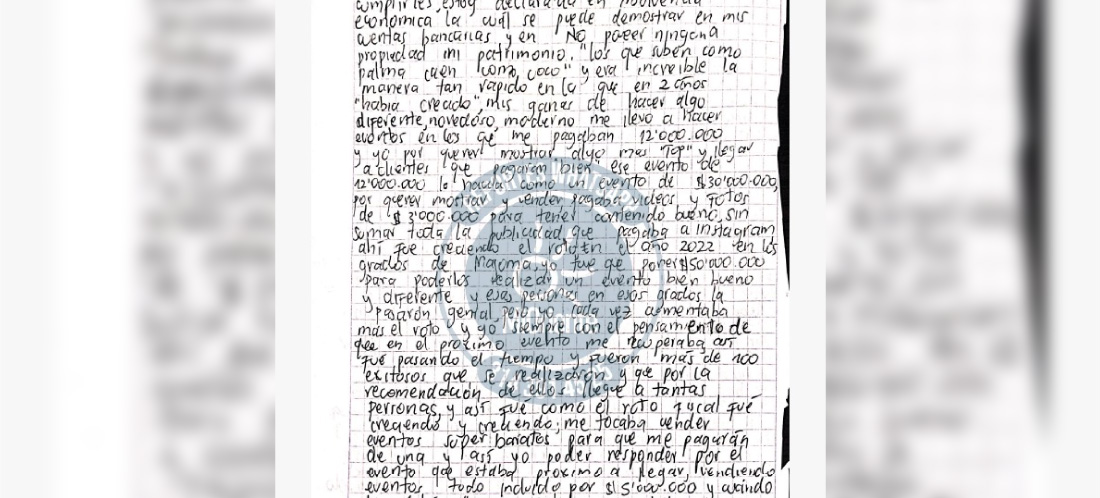 cumplirles, estoy declarada en insolvencia
economica la cual se puede demostrar en mis
cuentas bancarias y en NO poseer ninguna
propiedad mi patrimonio. "los que suben como
palma caen como coco" y era increible la
manera tan rapido en la que en 2 años
"habia creado", mis ganas de hacer algo
diferente, novedoso, moderno me llevo a hacer
eventos en los que me pagaban 12'000.000
y yo por querer mostrar algo mas "Top" y llegar
a clientes que pagaran bien ese evento de
12'000.000 lo hacia como un evento de $30'000.000,
por querer mostrar y vender pagaba videos y fotos
de $3'000.000 para tener contenido bueno, sin
sumar toda la publicidad que pagaba a instagram,
ahí fue creciendo el roto En el año 2022 en los
grados de yo tuve que poner $50'000.000
para poderlos realizar un evento bien bueno
y diferente y esas personas en esos grados la
pasarón genial, pero yo cada vez aumentaba
mas el roto y yo siempre con el pensamiento de
que en el proximo evento me recuperaba así
fue pasando el tiempo y fueron mas de 200
exitosos que se realizarón y que por la
recomendación de ellos llegue a tantas
personas, y así fué como el roto fué
creciendo y creciendo; me tocaba vender
eventos super baratos para que me pagarán
de una y así yo poder responder por el
evento que estaba proximo a llegar, vendiendo
eventos todo incluido por $15'000.000 y cuando